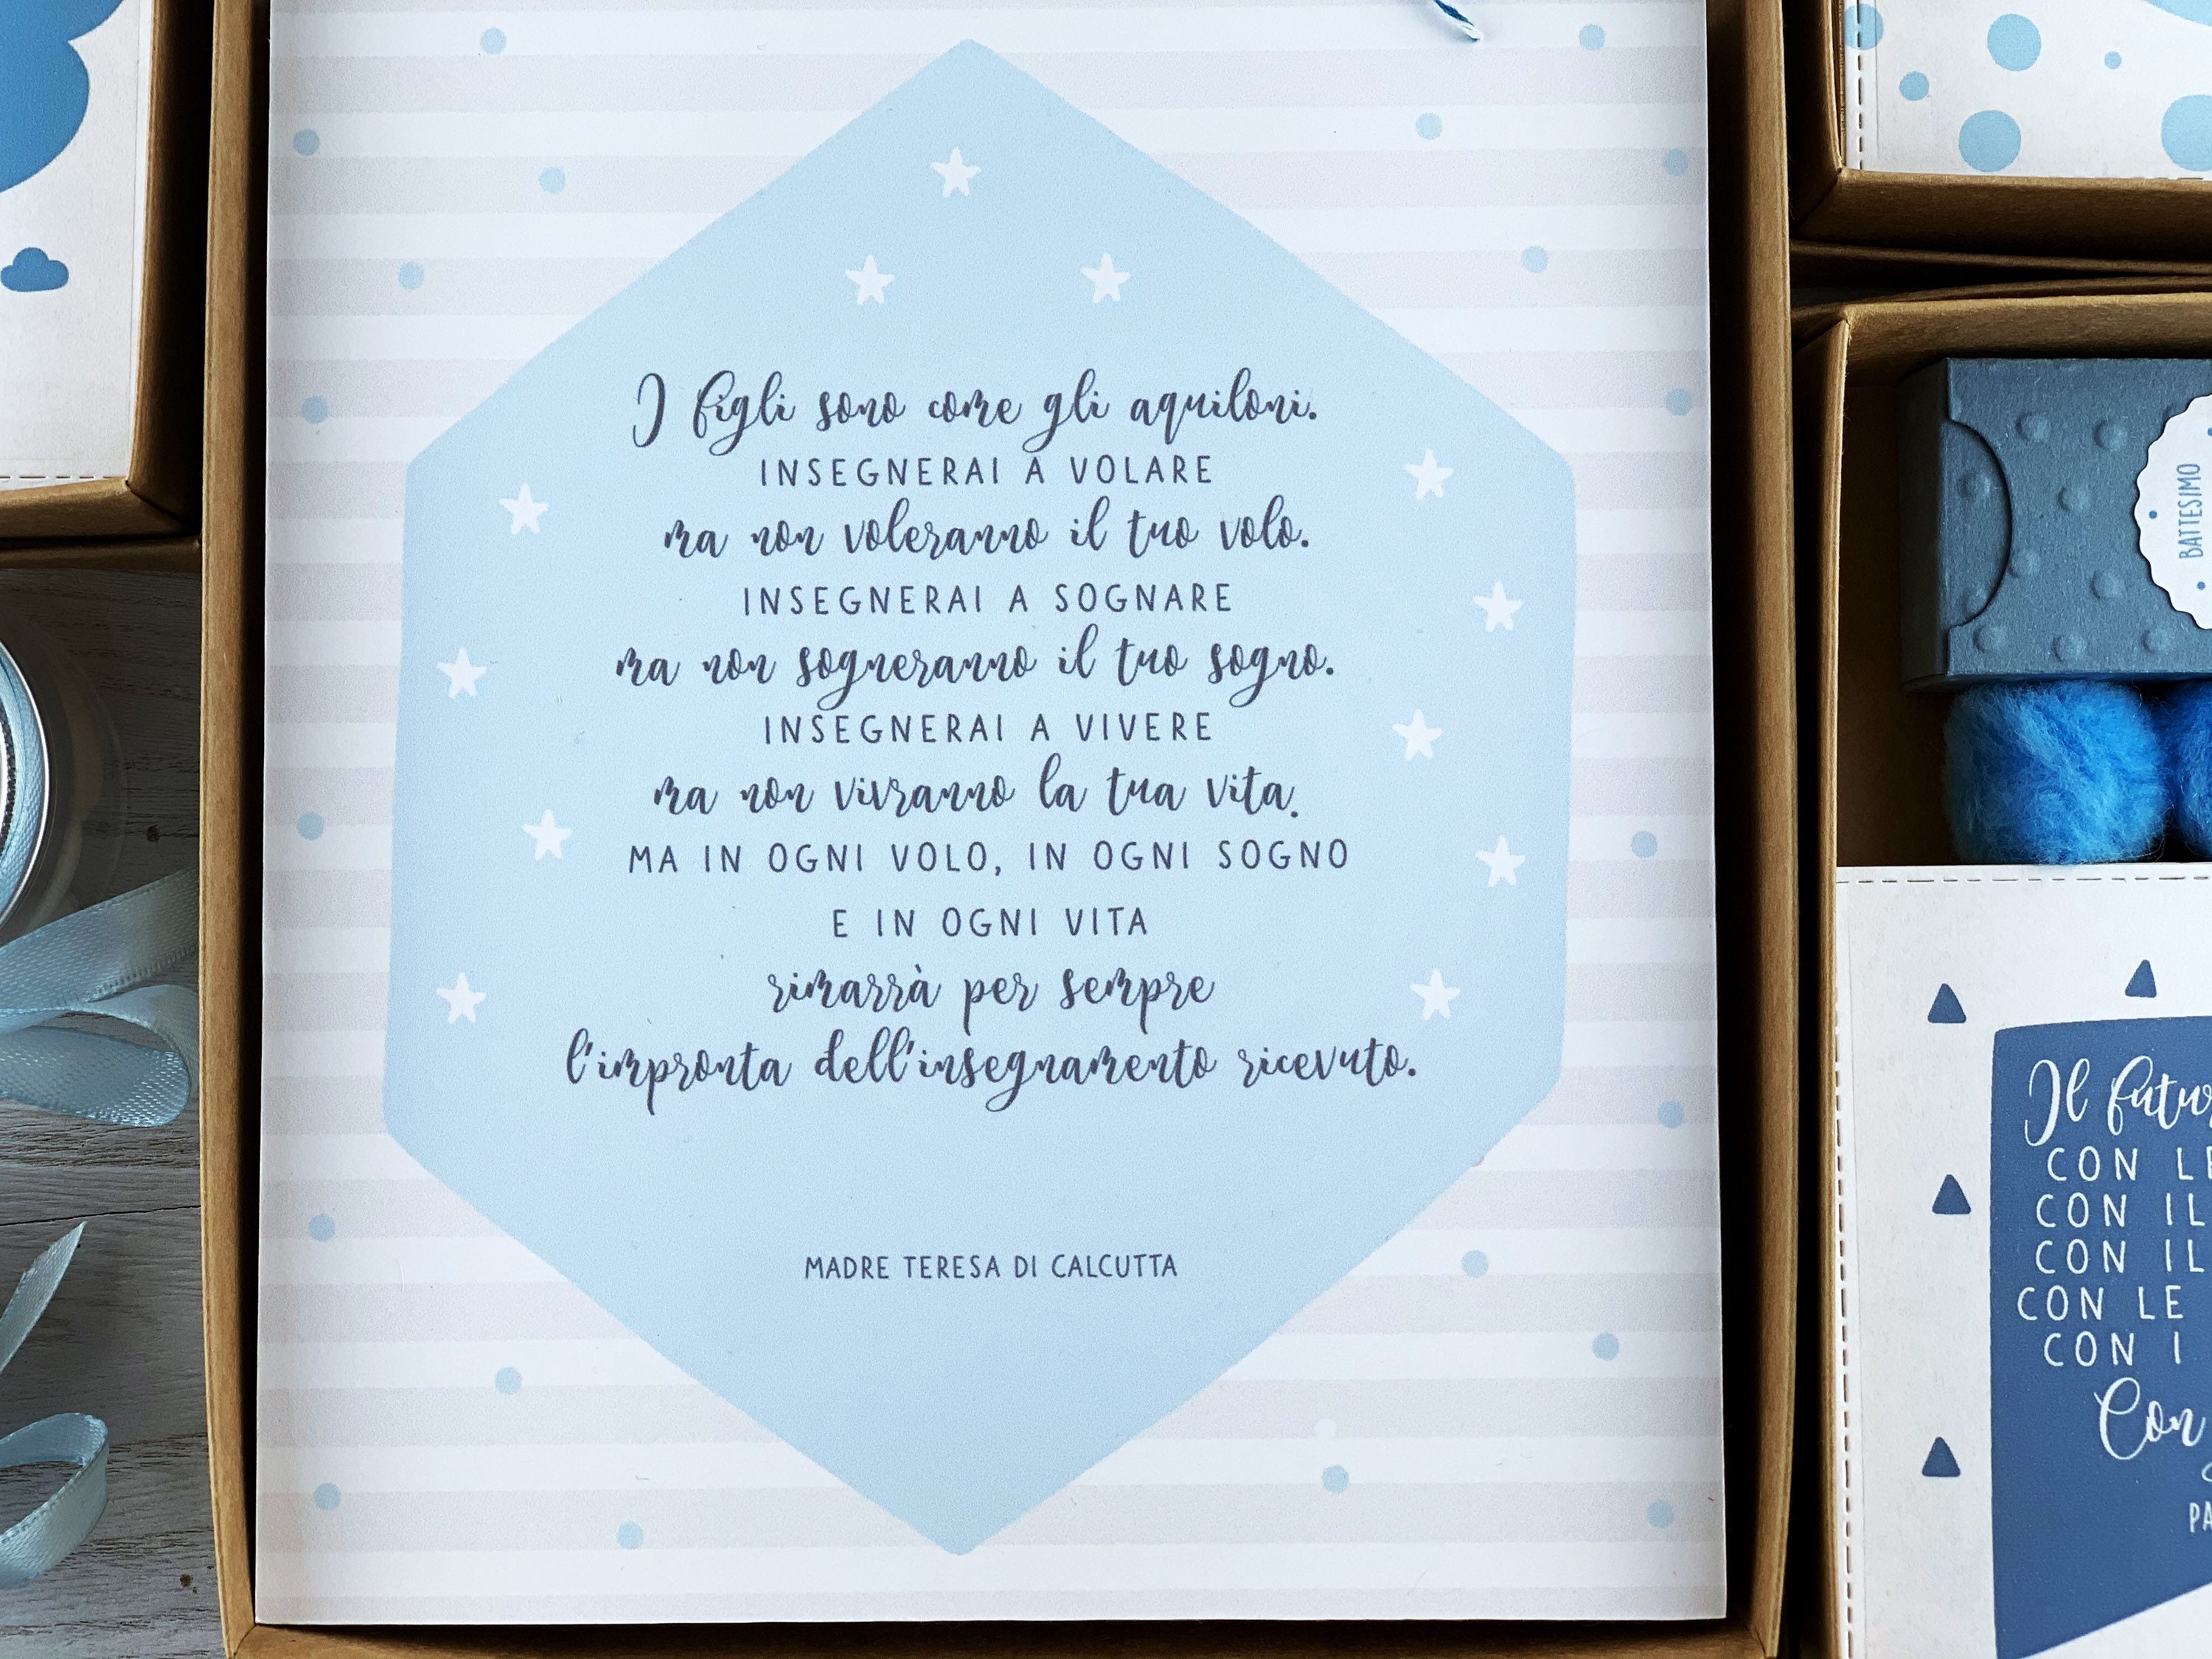 I figli sono come gli aquiloni.
INSEGNERAI A VOLARE
ma non voleranno il tuo volo.
INSEGNERAI A SOGNARE
ma non sogneranno il tuo sogno.
INSEGNERAI A VIVERE
ma non vivranno la tua vita.
MA IN OGNI VOLO, IN OGNI SOGNO
E IN OGNI VITA
rimarrà per sempre
l'impronta dell'insegnamento ricevuto.
MADRE TERESA DI CALCUTTA
BATTESIMO
Il
CON
CON IL
CON IL
CON LE
CON I
Con